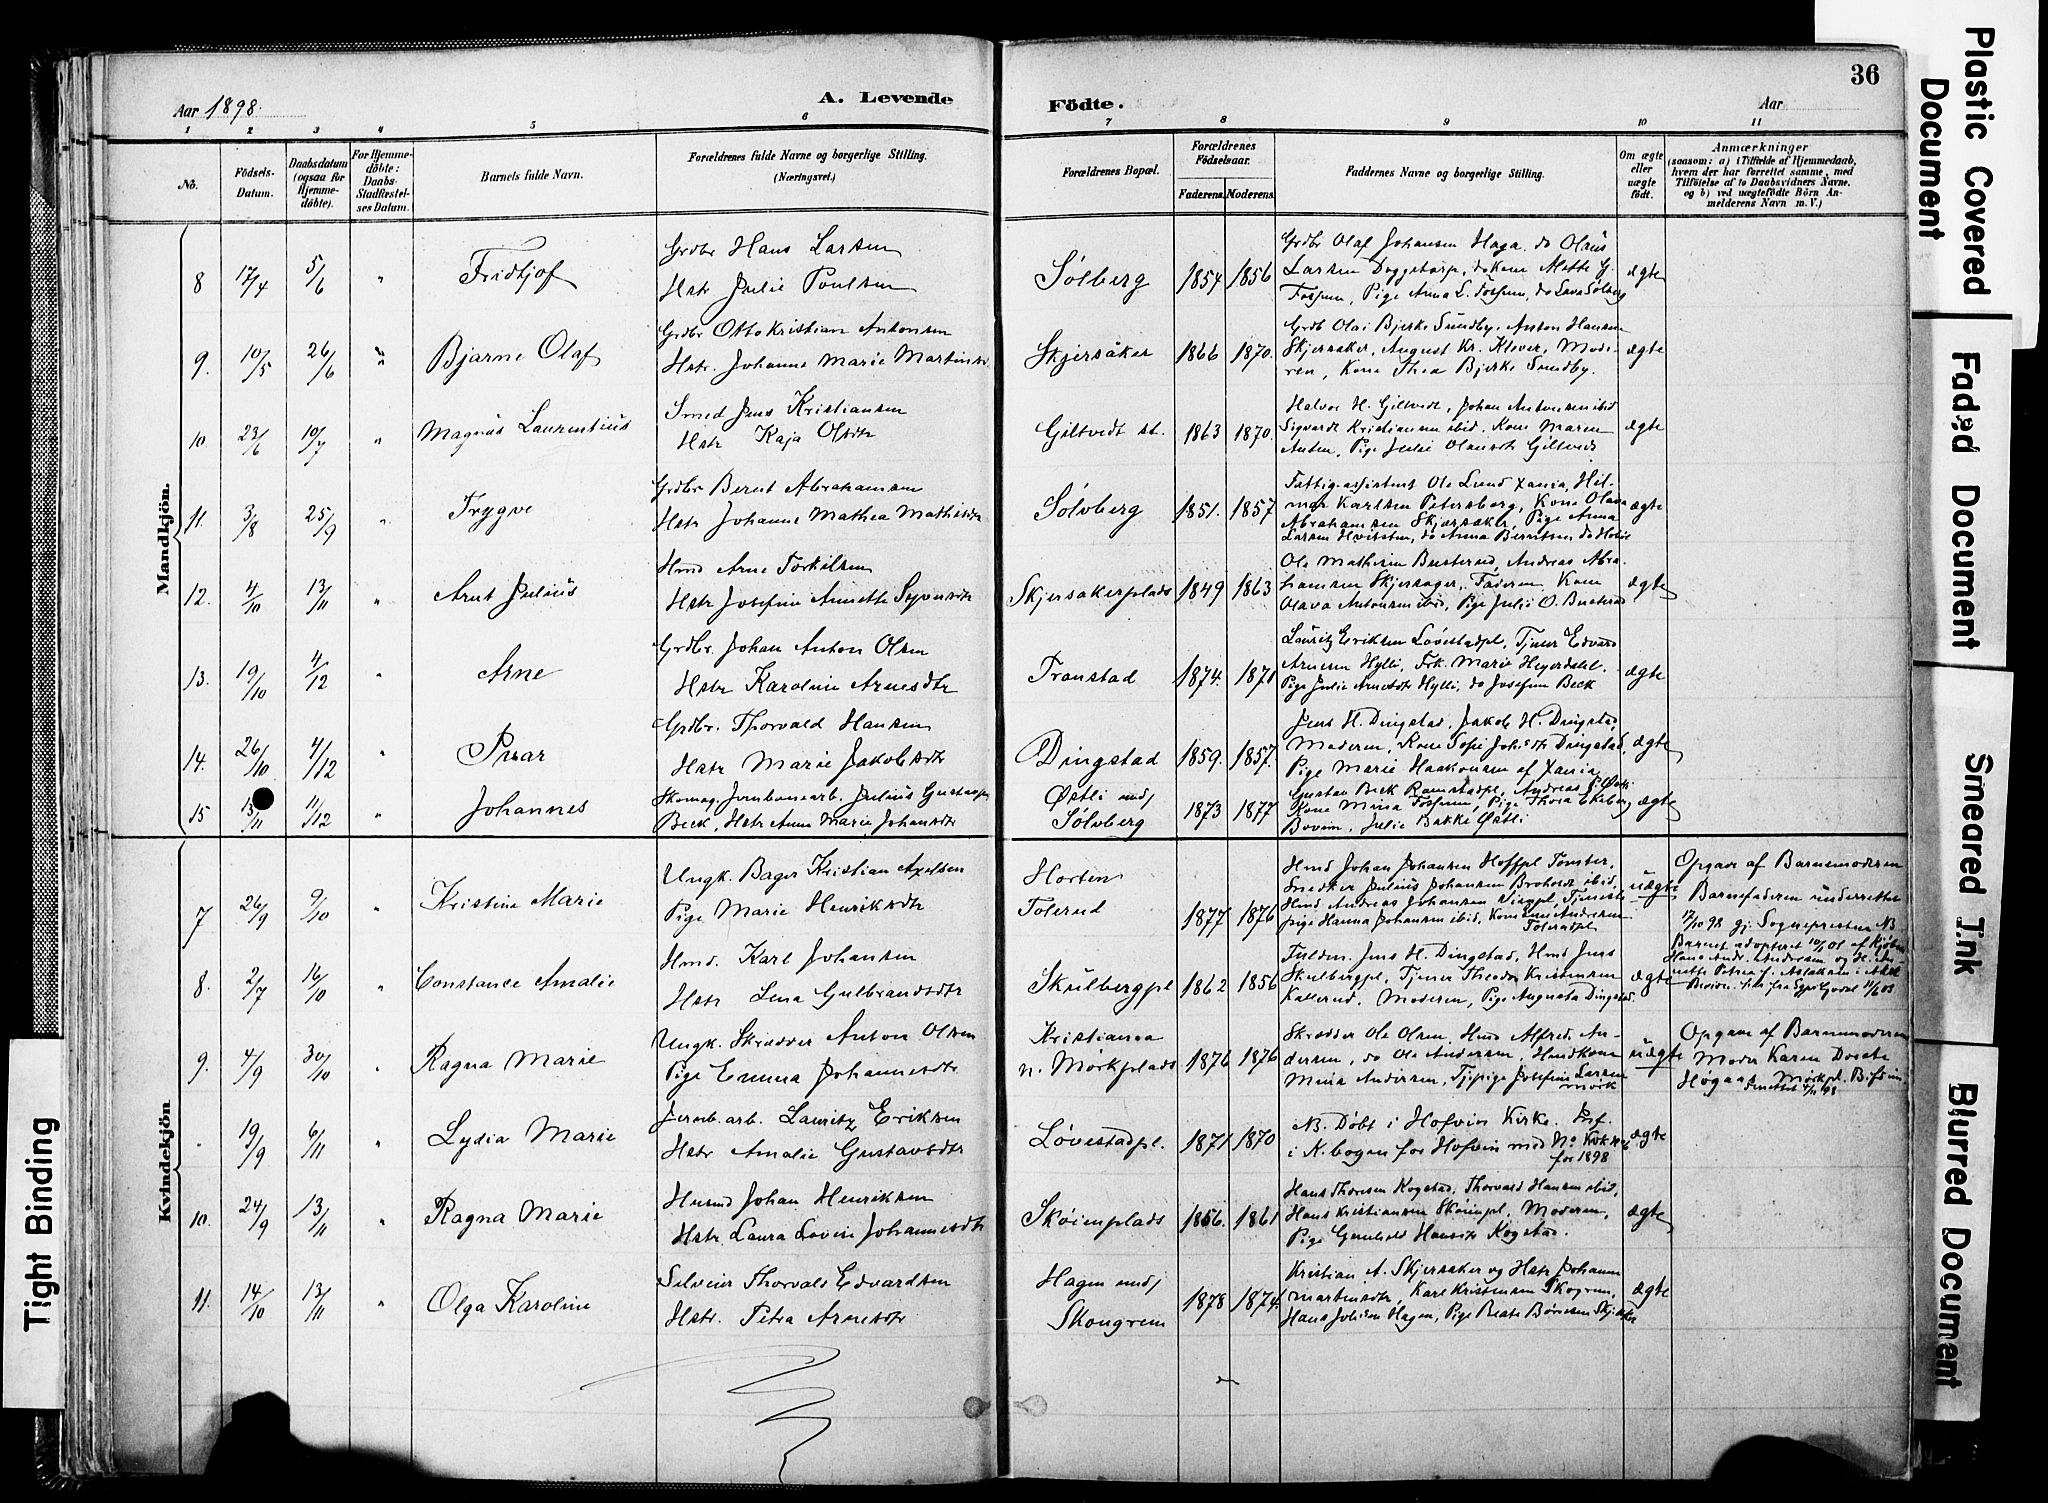 36
Aar 1898.
A. Levende
Födte.
Aar
1 2 3 4 5 6 7 8 9 10 11
No.
Födsels-Datum.
Daabsdatum (ogsaa for Hjemme-döbte).
For Hjemme-döbte: Daabs-Stadfæstel-ses Datum.
Barnets fulde Navn.
Forældrenes fulde Navne og borgerlige Stilling.
(Næringsvei.)
Forældrenes Bopæl.
Forældrenes Födselsaar.
Faderens. Moderens.
Faddernes Navne og borgerlige Stilling.
Om ægte eller uægte födt.
Anmærkninger
(saasom: a) i Tilfælde af Hjemmedaab,
hvem der har forrettet samme, med
Tilföielse af to Daabsvidners Navne,
og b) ved uægtefödte Börn An-
melderens Navn m. V.)
Mandkjön.
8 17/4 5/6 " Fridtjof
Grdbr Hans Larsen
Hstr Julie Poulsen
Sölberg 1854 1856
Grdbr Olaf Johansen Haga, do Olaus
Larsen Doggetorp, do Kone Mette G.
Fossum, Pige Anna L. Fossum, do Lava Sølberg
ægte
9. 10/5 26/6 " Bjarne Olaf
Grdbr. Otto Kristian Antonsen
Hstr. Johanne Marie Martinsdr.
Skjersåker 1866 1870.
Grdb Olai Bjerke Sundby, Anton Hansen
Skjersaker, August Kr. Klever, Mode-
ren, Kone Thea Bjerke Sundby.
ægte
10. 23/6 10/7 " Magnus Laurentius
Smed Jens Kristiansen
Hstr Kaja Olsdtr
Giltvedt st. 1863 1870.
Halvor H. Giltvedt, Johan Antonsen ibid
Sigvardt Kristiansen ibid. Kone Maren
Anten, Pige Julie Olausdtr Giltvedt
ægte
11. 3/8 25/9 " Trygve
Grdbr Bernt Abrahamsen
Hstr Johanne Mathea Mathisdtr
Sølvberg 1851. 1857
Fattigassistent Ole Lund Xania, Hil-
mar Karlsen Petersborg, Kone Olava
Abrahamsen Skjersaker, Pige Anna
Larsen Hvitsten, do Anna Berntsen, do
ægte
12. 4/10 13/11 " Arnt Julius
Hmd Arne Torkilsen
Hstr Josefine Annette Syversdtr
Skjersakerplads 1849 1863
Ole Mathisen Busterud, Andreas Abra-
hamsen Skjersager, Faderen, Kone
Olava Antonsen ibid, Pige Julie O. Busterud
ægte
13. 19/10 4/12 " Arne
Grdbr. Johan Anton Olsen
Hstr Karoline Arnesdtr
Tronstad 1874. 1871
Lauritz Eriksen Løvestadpl, Tjener Edvard
Arnesen Hylli, Frk. Marie Heyerdahl.
Pige Julie Arnesdtr Hylli, do Josefine Beck
ægte
14. 26/10 4/12 "
Grdbr. Thorvald Hansen
Hstr Marie Jakobsdtr
Dingstad 1859. 1857.
Jens H. Dingstad, Jakob H. Dingstad,
Moderen, Kone Sofie Johsdtr Dingstad
Pige Marie Haakonsen af Xania
ægte
15 13/11 11/12 " Johannes
Skomag. Jernbanearb. Julius Gustavsen
Beck, Hstr Anna Marie Johansdtr
Østli und/
Sølvberg
1873 1877
Gustav Beck Ramstadpl, Andreas P. Østli
Kone Mina Fossum, Pige Thora Ekeberg
Bovim, Julie Bakke Østli
ægte
Kvindekjön
7 26/9 9/10 " Kristine Marie
Ungk. Bager Kristian Axelsen
Pige Marie Henriksdtr
Horten
Tolerud
1877 1876
Hmd Johan Johansen Hoffpl Tomter,
Smedker Julius Johansen Broholdt ibid,
Hmd Andreas Johansen Vingpl, Tjeneste
pige Hanna Johansen ibid, Kone Andersen
Tolerudpl
uægte
Opgave af Barnemoderen
Barnefaderen underrettet
17/10 98 gj. Sognepresten NB
Barnet adopteret 10/1 01 af Kjøbm
Hans Andr. Andresen og H. An-
nette Petrea f. Aslaksen i Aker
11/6 01
8. 2/7 16/10 " Constance Amalie
Hmd. Karl Johansen
Hstr Lena Gulbrandsdtr
Skulbergpl 1862 1856
Fuldm. Jens H. Dingstad, Hmd Jens
Skulbergpl, Tjener Theodor Kristensen
Kallerud, Moderen, Pige Augusta Dingstad.
ægte
9. 4/9 30/10 " Ragna Marie
Ungk. Skrædder Anton Olsen
Pige Emma Johannesdtr
Kristiania
n. Mörkplads
1876 1876
Skrædder Ole Olsen, Hmd Alfred An-
dersen, do Ole Andersen, Hmdkone
Mina Andersen, Tjpige Josefine Larsen
uægte
Opgave af Barnemoderen
Moder Karen Dorate
Høgaas Mörkpl.
" 19/9 6/11 " Lydia Marie
Jernb.arb. Lauritz Eriksen
Hstr Amalie Gustavsdtr
Løvestadpl. 1871 1870
NB. Døbt i Hofvin Kirke. Inf.
i K.bogen for Hofvin med No
for 1898
ægte
10. 24/9 13/11 " Ragna Marie
Husmd Johan Henriksen
Hstr. Laura Lovise Johannesdtr
Skøienplads 1856. 1861
Hans Thoresen Kogstad, Thorvald Hansen ibid,
Hans Kristiansen Skøienpl, Moderen,
Pige Gunhild Hansdtr Kogstad.
ægte
11. 14/10 13/11 " Olga Karoline
Selveier Thorvald Edvardsen
Hstr. Petra Arnesdtr
Hagen und/
Skongrem
1878 1874.
Kristian A. Skjersaker og Hstr Johanne
Martinsdtr, Karl Kristensen Skogrem,
Hans Johsen Hagen, Pige Beate Børresen Skjersaker
ægte
Plastic Covered Document
Faded Document
Smeared Ink
Blurred Document
Tight Binding